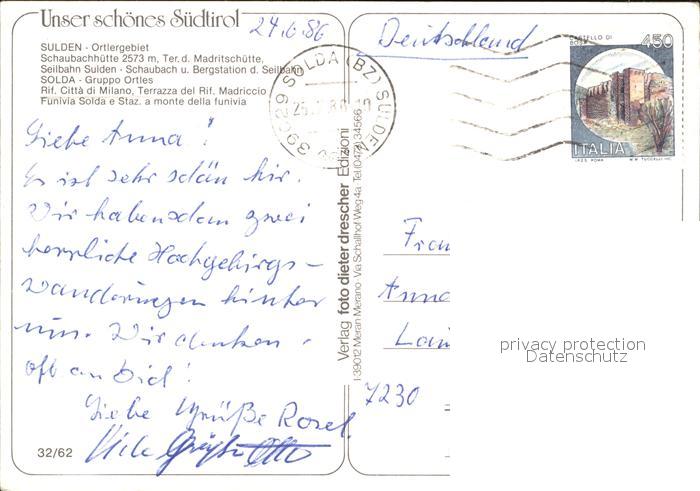 Unser schönes Südtirol
24.6.86
Deutschland
SULDEN - Ortlergebiet
Schaubachhütte 2573 m, Ter. d. Madritschütte,
Seilbahn Sulden - Schaubach u. Bergstation d. Seilbahn
SOLDA - Gruppo Ortles
Rif. Città di Milano, Terrazza del Rif. Madriccio
Funivia Solda e Staz. a monte della funivia
39029 SOLDA (BZ) SULDEN
CASTELLO DI
450
ITALIA
I.P.Z.S. ROMA
Liebe Anna!
Es ist sehr schön hir.
Wir haben schon zwei
herrliche Hochgebirgs-
Wanderungen hinter
uns. Wir denken
oft an Dich!
Liebe Grüße Rosel.
Viele Grüße Otto
32/62
Verlag foto dieter drescher Edizioni
I-39012 Meran Merano - Via Schallhof-Weg 4a Tel. (0473) 34566
Frau
Anna
7230
privacy protection
Datenschutz